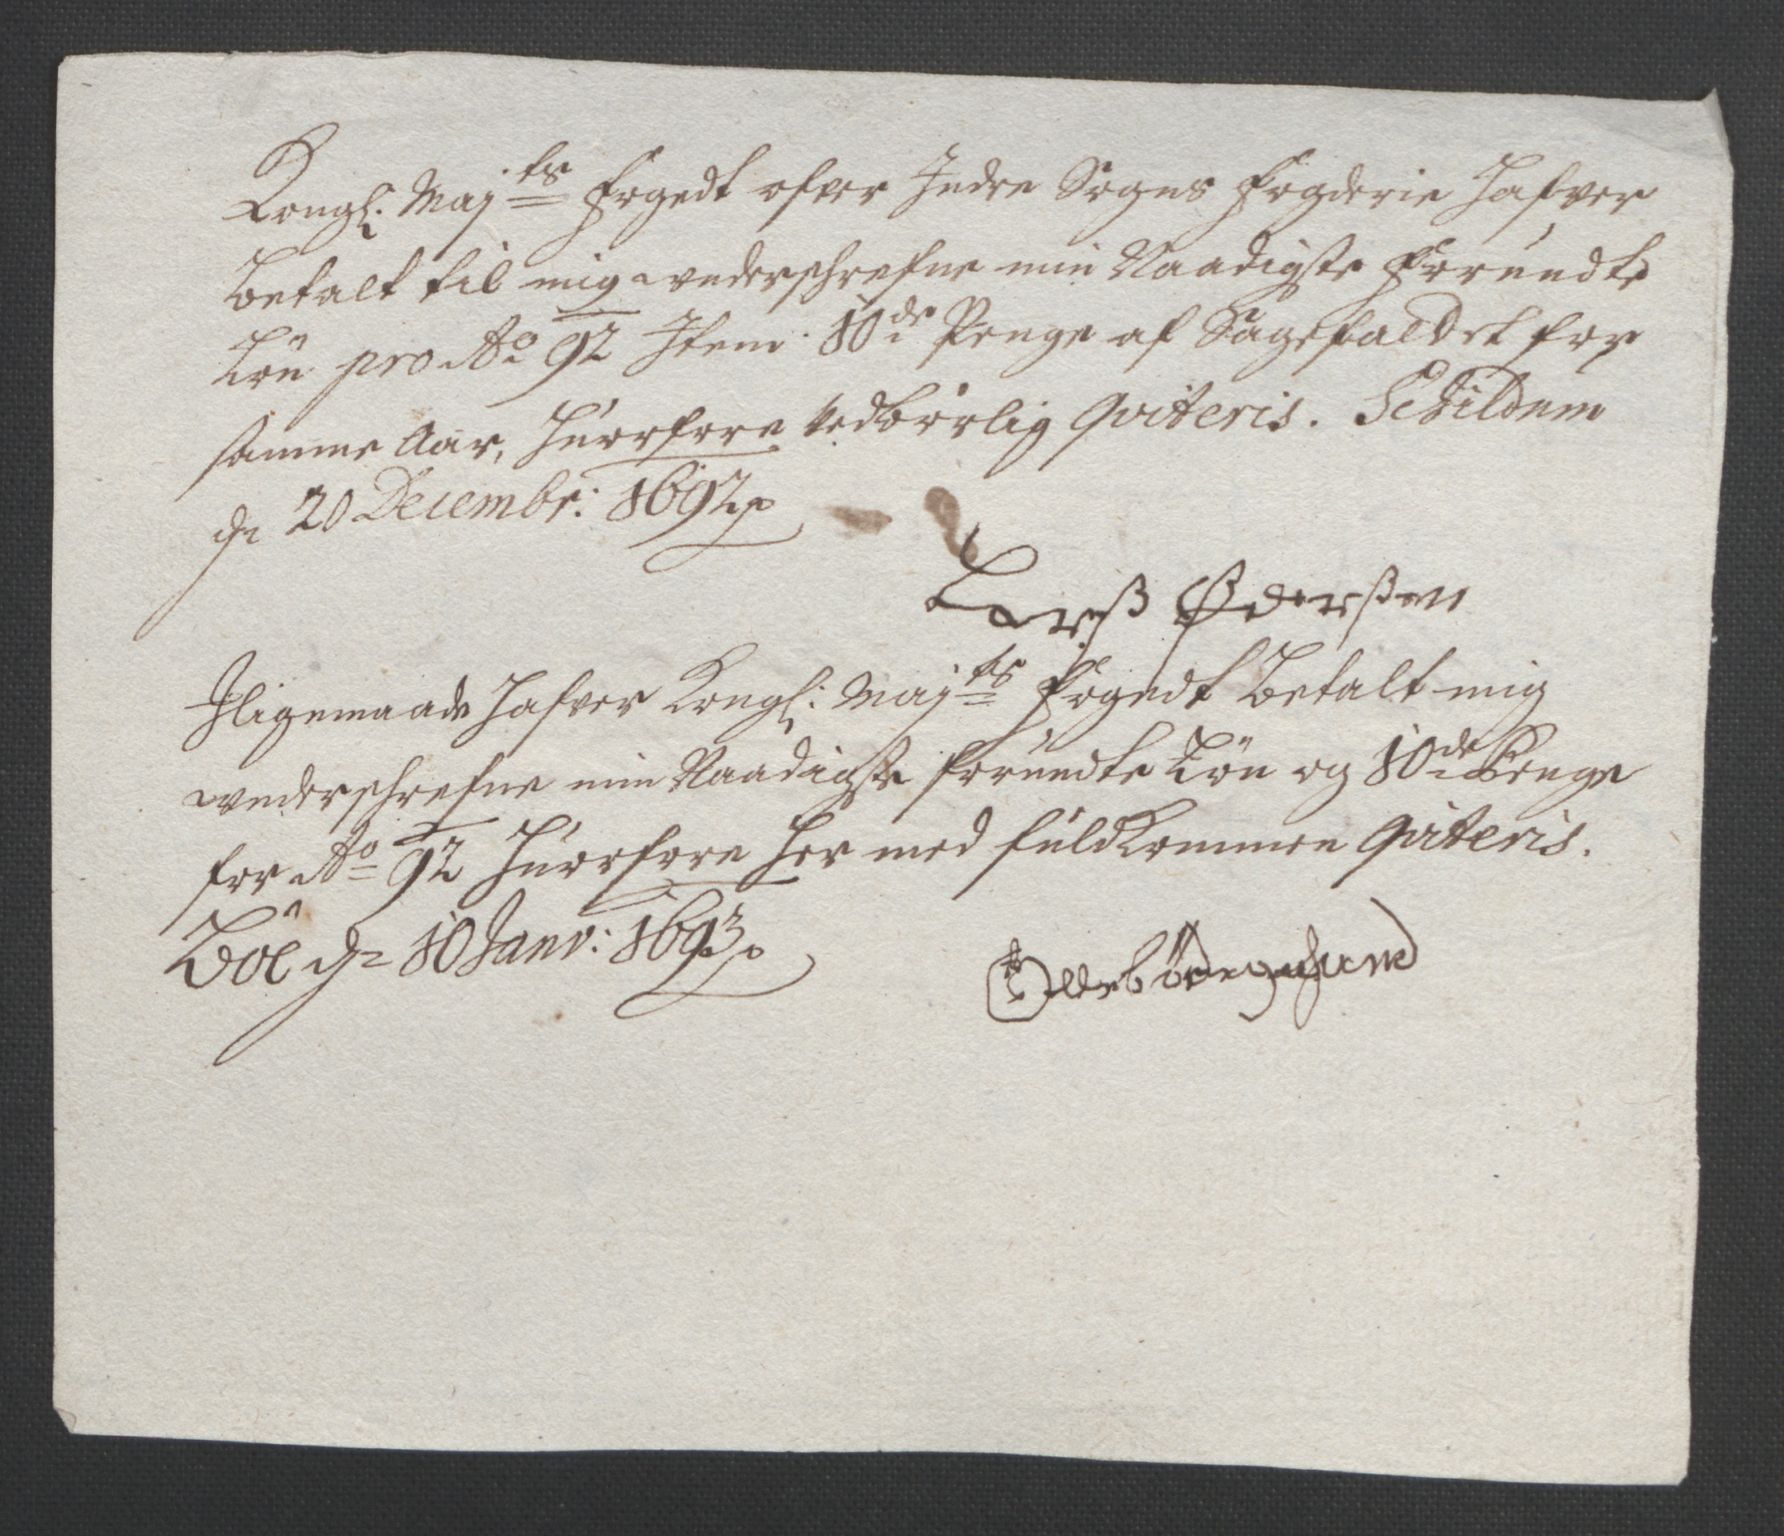 Kongl: Maj:ts Fogedt ofver Indre Sogns Fogderie Hafver
Betalt til mig underschrefne min Naadigste Forundte
Lön pro Ao 92 Item 10de Penge af Sagefaldet for
samme Aar, Huorfore vedbörlig Qviteris. Schildum
de 20 Decembr: 1692
Larß Pederßen
Iligemaade Hafver Kongl: Maj:ts Fogedt Betalt mig
underschrefne min Naadigste forundte Lön og 10de Penge
for Ao 92 Huorfore her med fuldkommen Qviteris.
Böe de 10 Janv: 1693